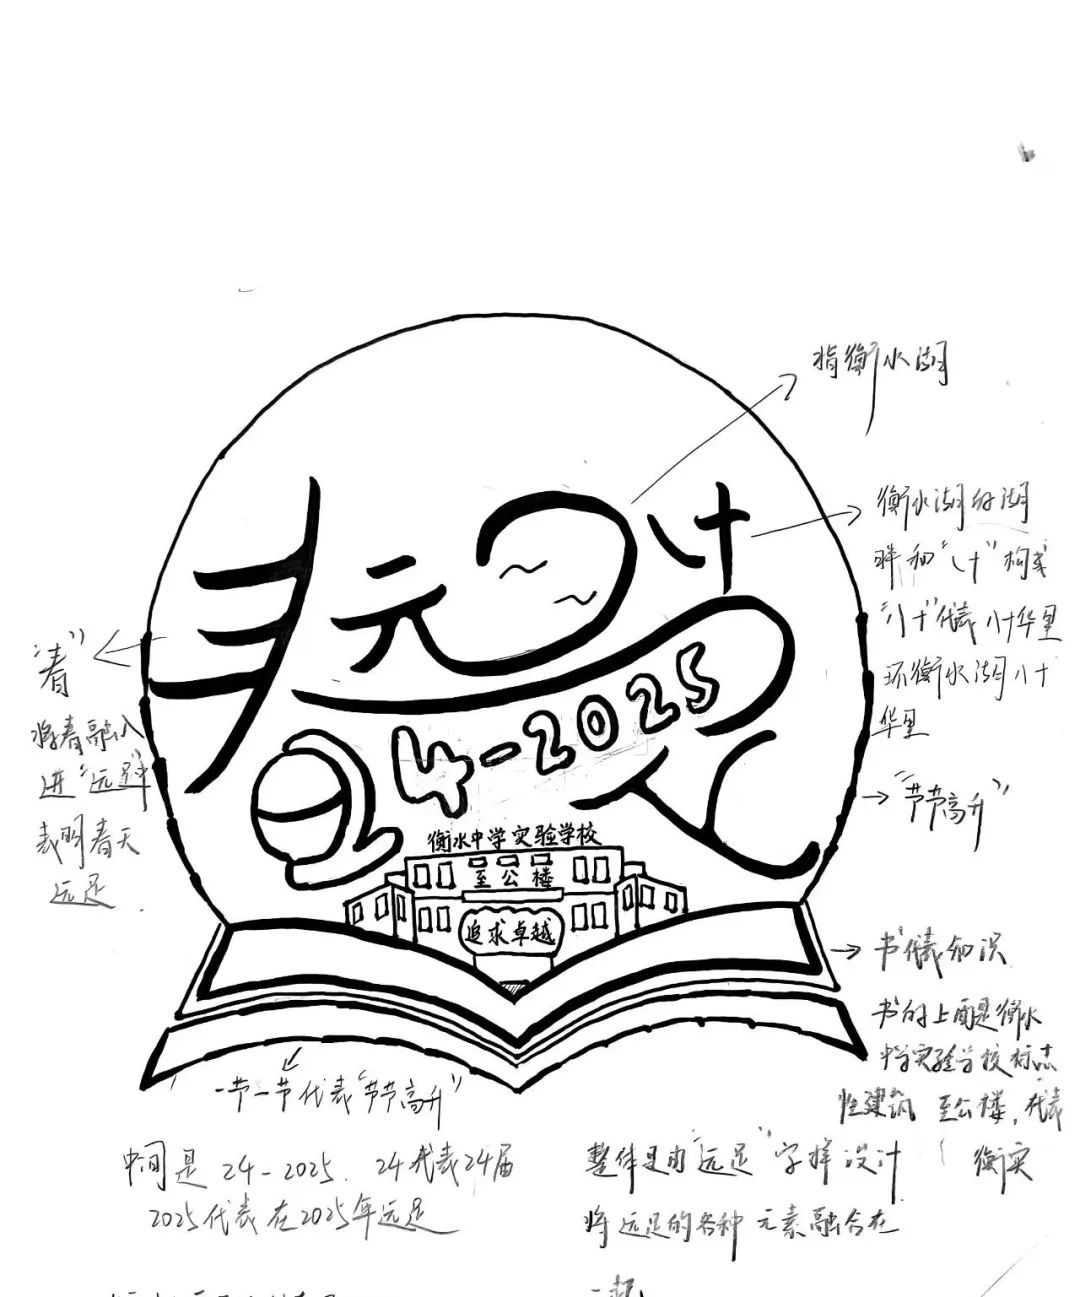 指衡水湖
衡水湖的湖
畔和"八十"构成
"八十"代表八十华里
环衡水湖八十
华里
"春"
将春融入
进"远足"
表明春天
远足
24-2025
"节节高升"
衡水中学实验学校
至公楼
追求卓越
书代表知识
书的上面是衡水
中学实验学校标志
性建筑 至公楼,代表
衡实
一节一节代表"节节高升"
中间是 24-2025. 24代表24届
2025代表在2025年远足
整体是由"远足"字样设计
将远足的各种元素融合在
一起